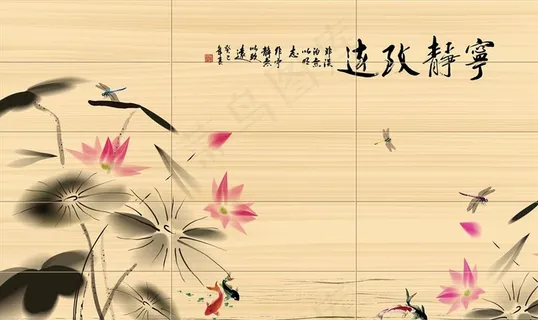 寧靜致遠
非淡
泊無
以明
志
非寧
靜無
以致
遠
癸巳